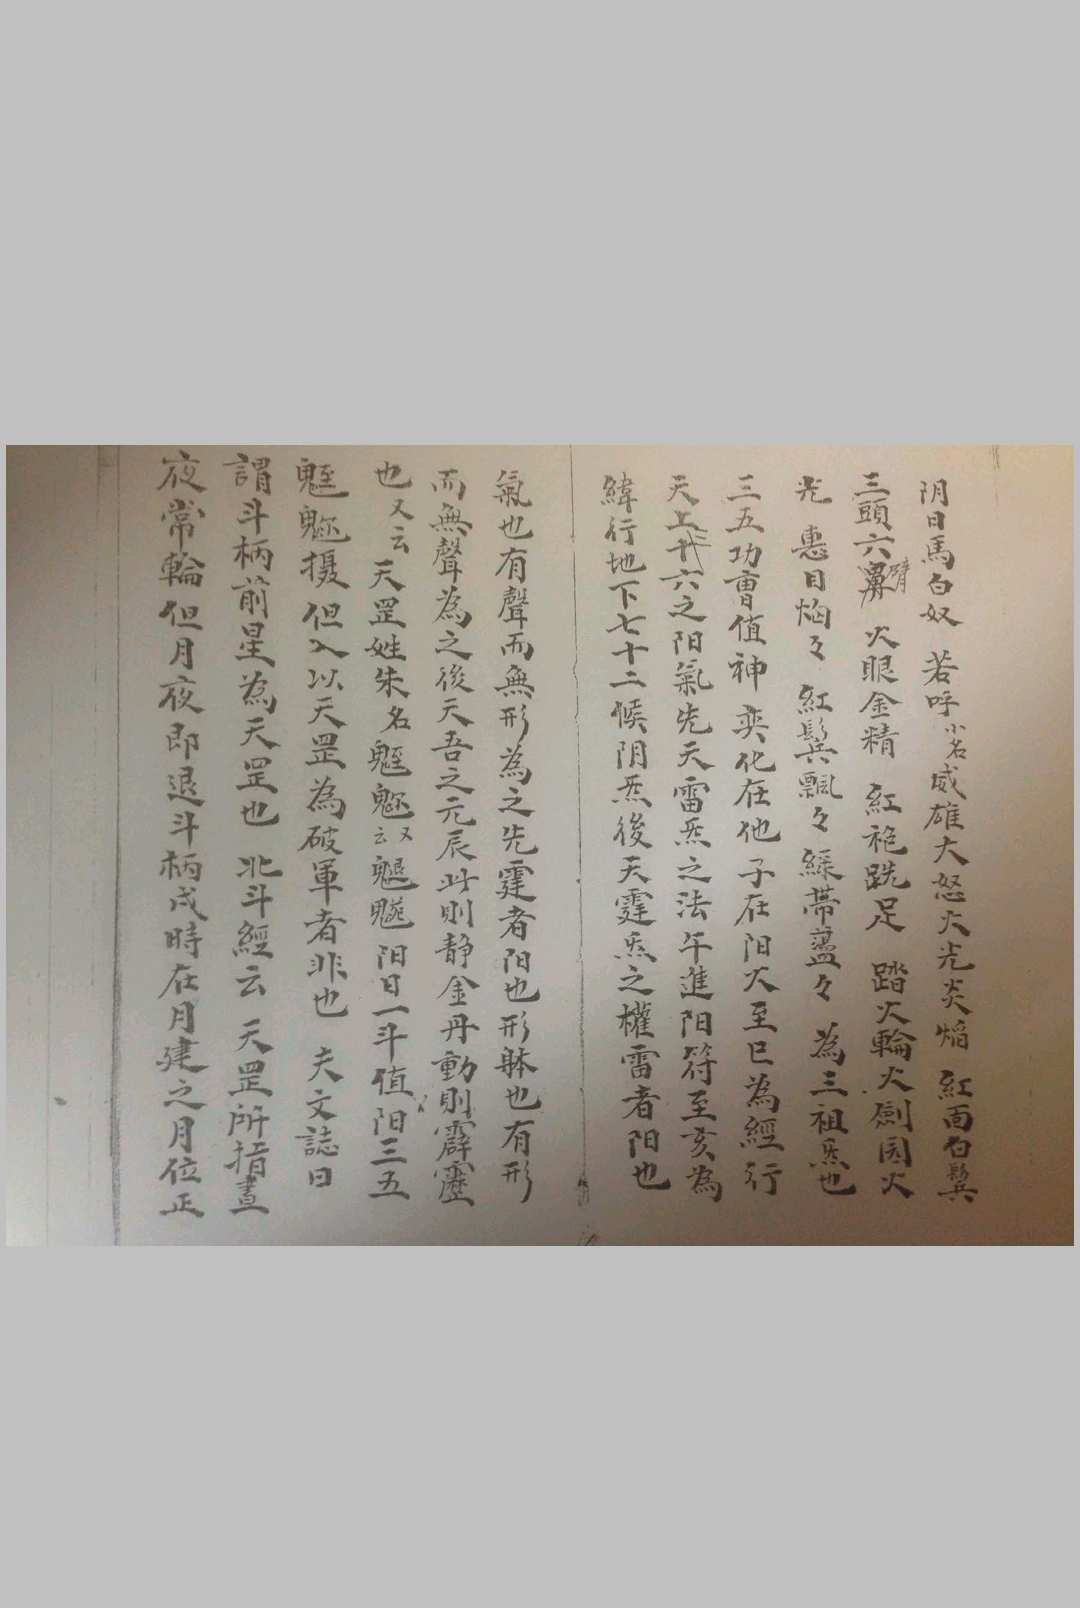 阴日馬白奴 若呼小名威雄大怒火光炎焰 紅面白鬓
三頭六臂 火眼金精 紅袍跣足 踏火輪火劍因火
光 惠目焰々 紅鬓飄々 綠帶蕩々 為三祖炁也
三五功曹值神 奕化在他 子在阳火至巳為經行
天上三十六之阳氣先天雷炁之法午進阳符至亥為
緯行地下七十二候阴炁後天霆炁之權雷者阳也
氣也有聲而無形為之先霆者阳也形躰也有形
而無聲為之後天吾之元辰此則静金丹動則霹靈
也又云天罡姓朱名魓魀又云 阳日一斗值阳三五
摄但入以天罡為破軍者非也 夫文誌曰
謂斗柄前星為天罡也 北斗經云 天罡所指晝
夜常輪但月夜即退斗柄戌時在月建之月位正